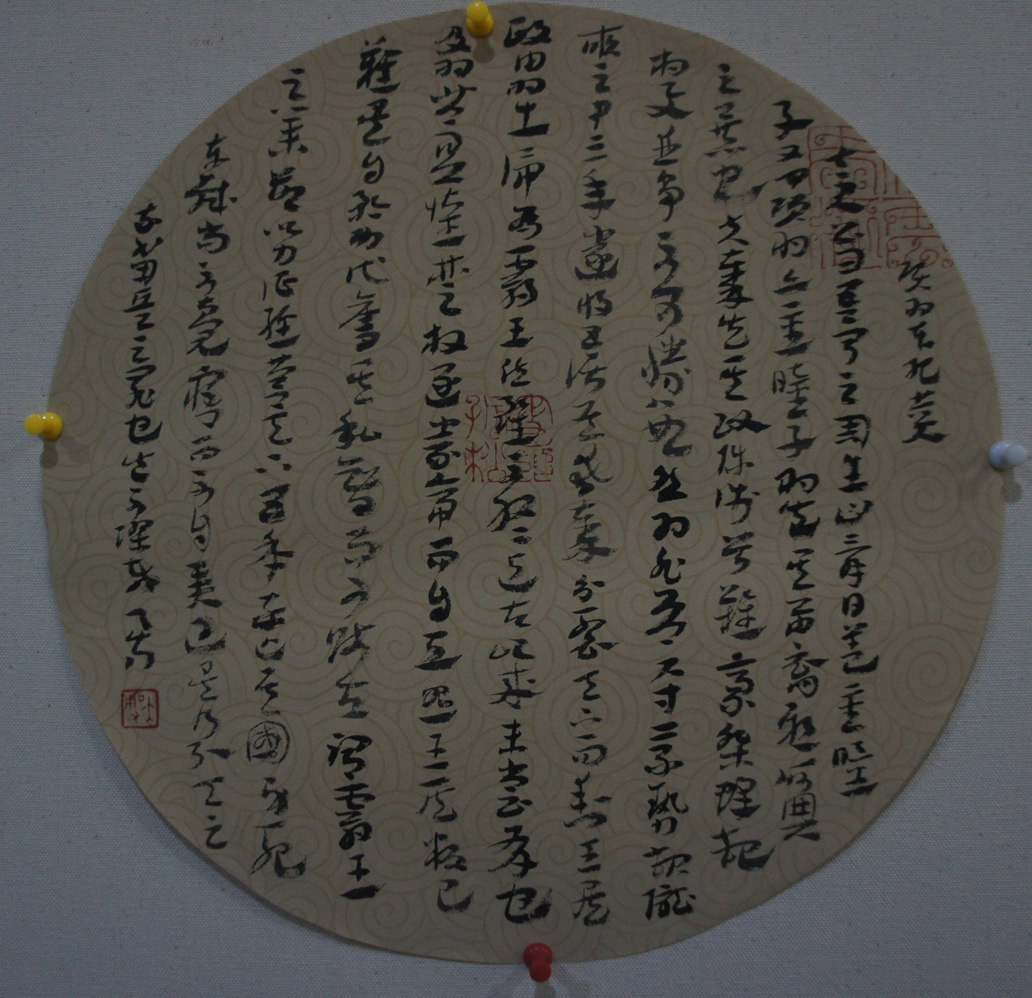 項羽本紀贊
太史公曰吾聞之周生曰舜目蓋重瞳
子又聞項羽亦重瞳子羽豈其苗裔邪何興
之暴也夫秦失其政陳涉首難豪傑蜂起
相與並爭不可勝數然羽非有尺寸乘勢起隴
畝之中三年遂將五諸侯滅秦分裂天下而封王侯
政由羽出號為霸王位雖不終近古以來未嘗有也
及羽背關懷楚放逐義帝而自立怨王侯叛己
難矣自矜功伐奮其私智而不師古謂霸王
之業欲以力征經營天下五年卒亡其國身死
東城尚不覺寤而不自責過矣乃引天亡
我非用兵之罪也豈不謬哉